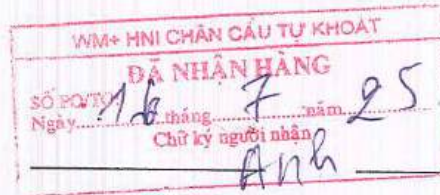 WM+ HNI CHÂN CẦU TỰ KHOÁT
ĐÃ NHẬN HÀNG
SỐ PO/TO
Ngày 16 tháng 7 năm 25
Chữ ký người nhận
Anh